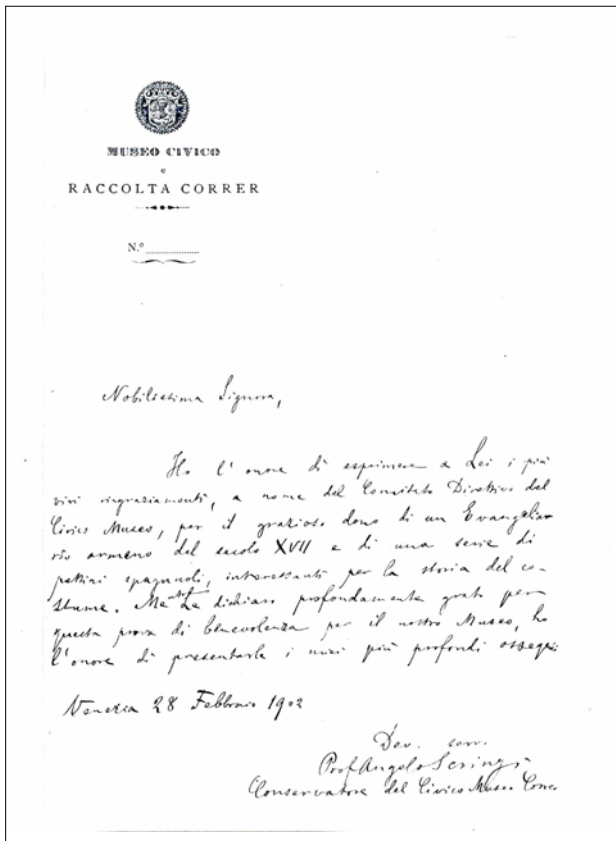 MUSEO CIVICO
e
RACCOLTA CORRER
N.º
Nobilissima Signora,
Ho l'onore di esprimere a Lei i più
vivi ringraziamenti, a nome del Comitato Direttivo del
Civico Museo, per il grazioso dono di un Evangelia-
rio armeno del secolo XVII e di una serie di
pettini spagnoli, interessanti per la storia del co-
stume. Me Le dichiaro profondamente grato per
questa prova di benevolenza per il nostro Museo, ho
l'onore di presentarle i miei più profondi ossequi.
Venezia 28 Febbraio 1902
Dev. serv.
Prof Angelo
Conservatore del Civico Museo Correr